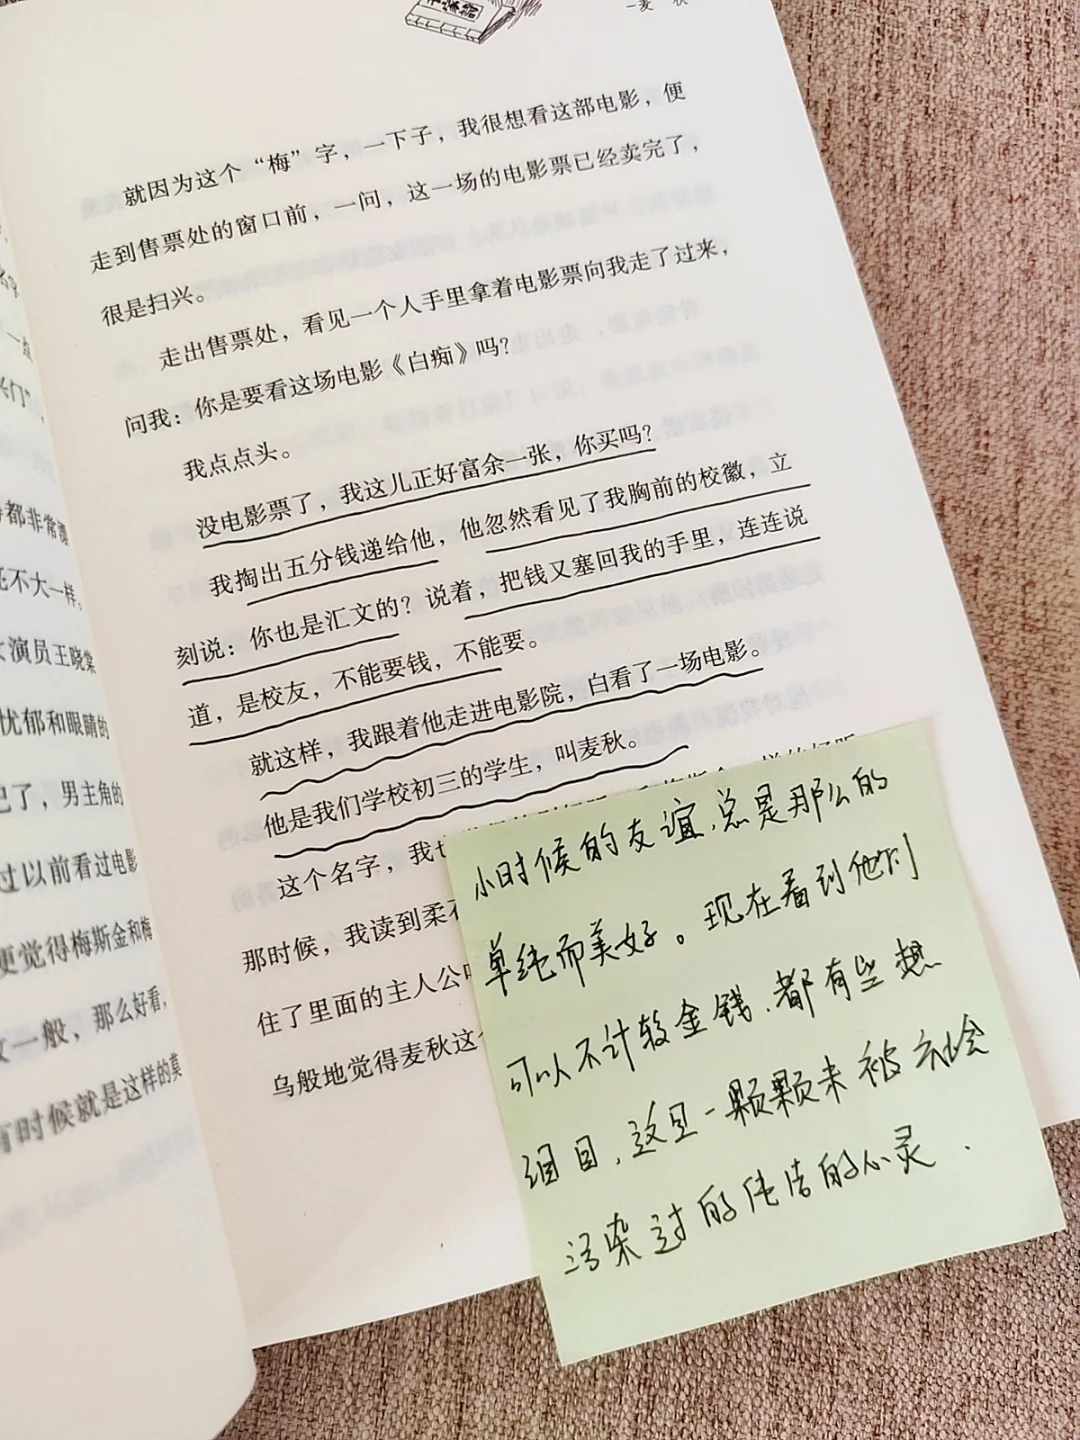 麦 秋
就因为这个“梅”字，一下子，我很想看这部电影，便
走到售票处的窗口前，一问，这一场的电影票已经卖完了，
很是扫兴。
走出售票处，看见一个人手里拿着电影票向我走了过来，
问我：你是要看这场电影《白痴》吗？
我点点头。
没电影票了，我这儿正好富余一张，你买吗？
我掏出五分钱递给他，他忽然看见了我胸前的校徽，立
刻说：你也是汇文的？说着，把钱又塞回我的手里，连连说
道，是校友，不能要钱，不能要。
就这样，我跟着他走进电影院，白看了一场电影。
他是我们学校初三的学生，叫麦秋。
这个名字，我
那时候，我读到柔
住了里面的主人公
乌般地觉得麦秋这
都非常漂
不大一样。
演员王晓棠
忧郁和眼睛的
了，男主角的
过以前看过电影
便觉得梅斯金和梅
一般，那么好看，
有时候就是这样的真
小时候的友谊，总是那么的
单纯而美好。现在看到他们
可以不计较金钱，都有些想
泪目，这是一颗颗未被社会
污染过的纯洁的心灵．